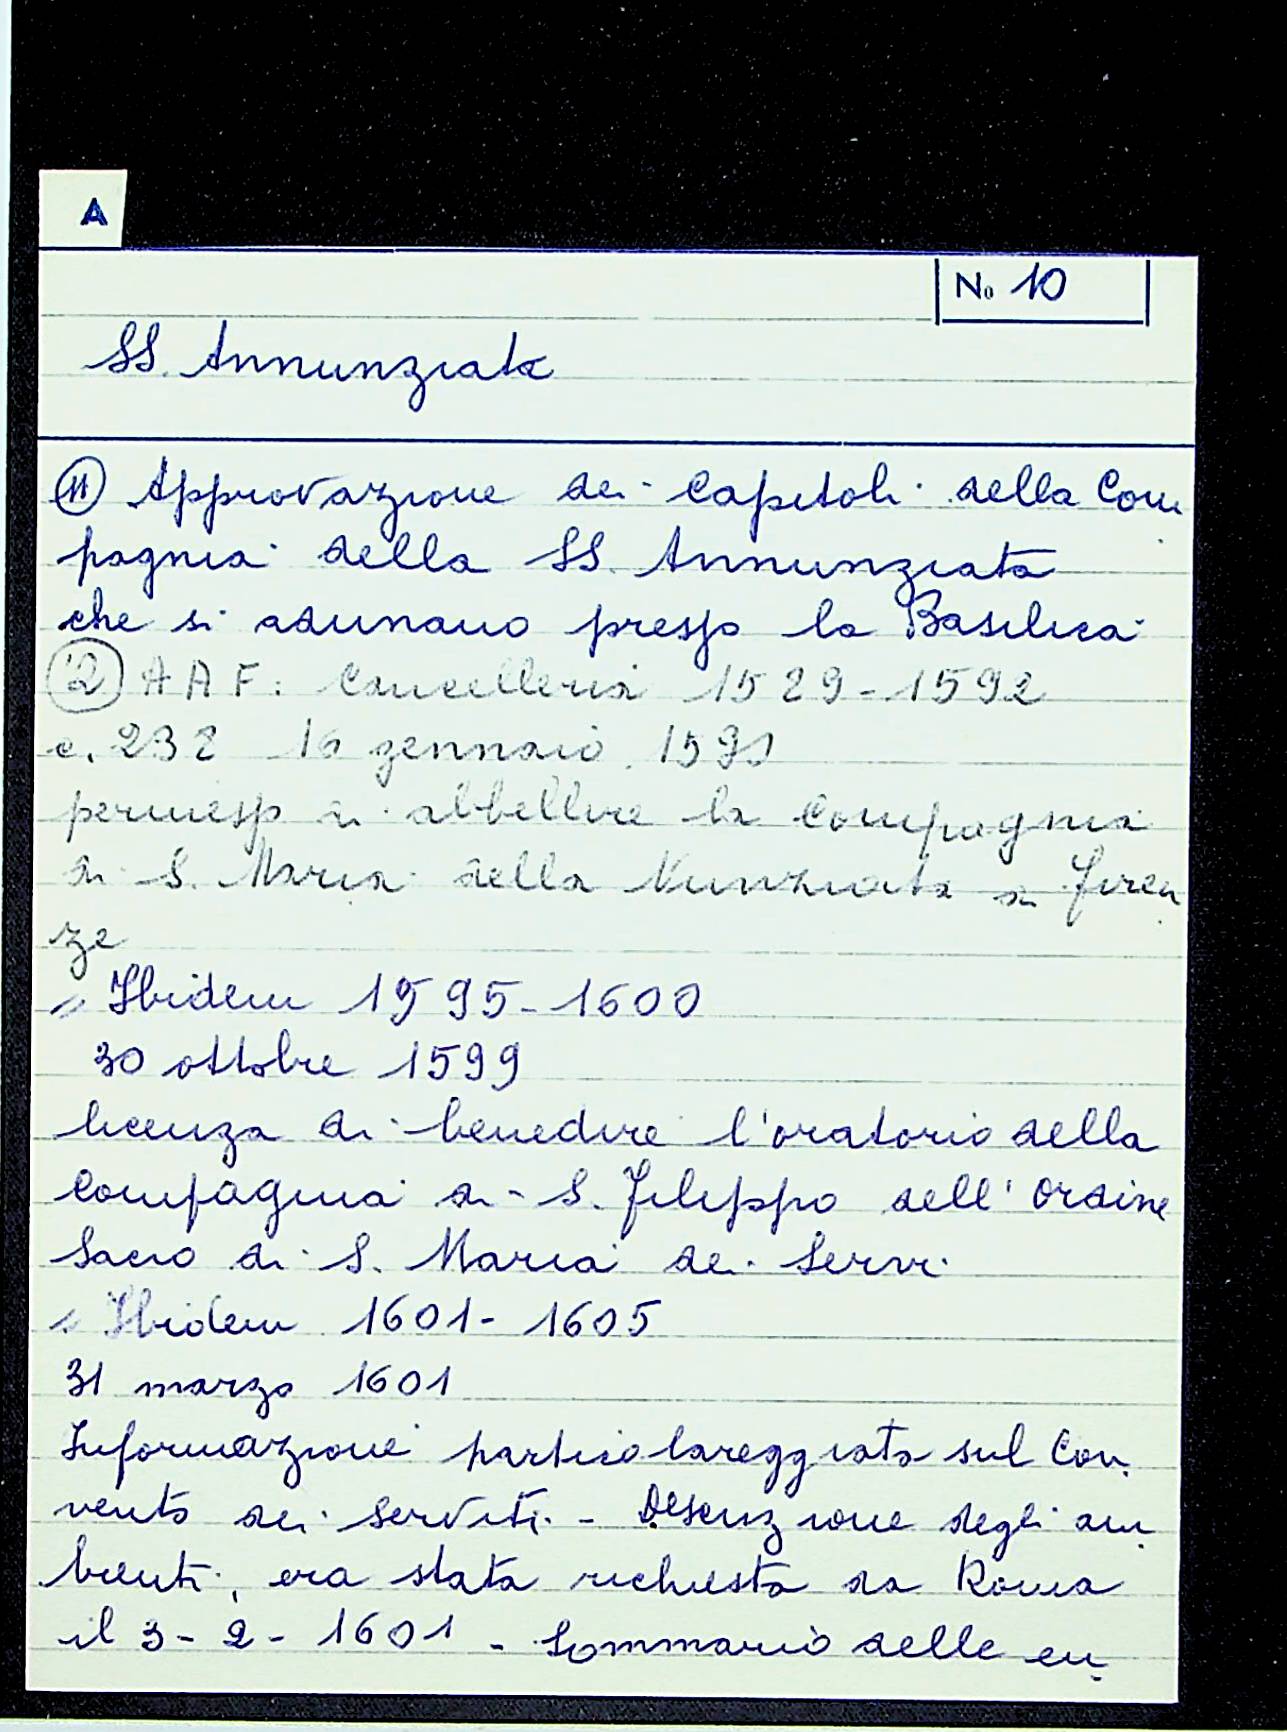 A
No 10
SS. Annunziata
11 Approvazione dei Capitoli della Com
pagnia della SS. Annunziata
che si adunano presso la Basilica
12 AAF: Cancelleria 1589-1592
c. 232 16 gennaio 1591
permesso di abbellire la Compagnia
di S. Maria della Nunziata di Firen
ze
" Ibidem 1595-1600
30 ottobre 1599
licenza di benedire l'oratorio della
Compagnia di S. Filippo dell'Ordine
Sacro di S. Maria dei Servi
" Ibidem 1601-1605
31 marzo 1601
Informazione particolareggiata sul Con
vento dei Serviti - Descrizione degli am
bienti, era stata richiesta da Roma
il 3-2-1601 - Sommario delle en